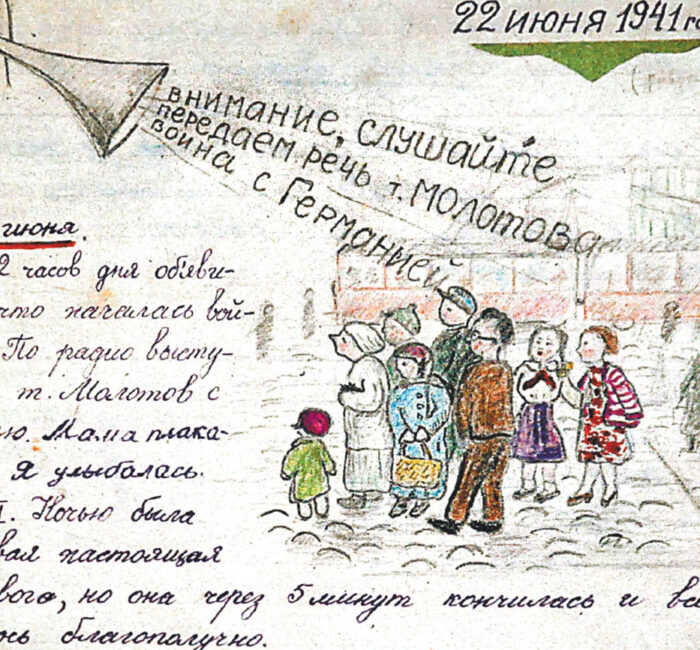 22 июня 1941 г.
внимание, слушайте
передаем речь т. МОЛОТОВА
война с Германией
июня.
2 часов дня объяви-
что началась вой-
По радио высту-
т. Молотов с
ю. Мама плака-
Я улыбалась.
I. Ночью была
вая настоящая
вога, но она через 5 минут кончилась и вс
ось благополучно.